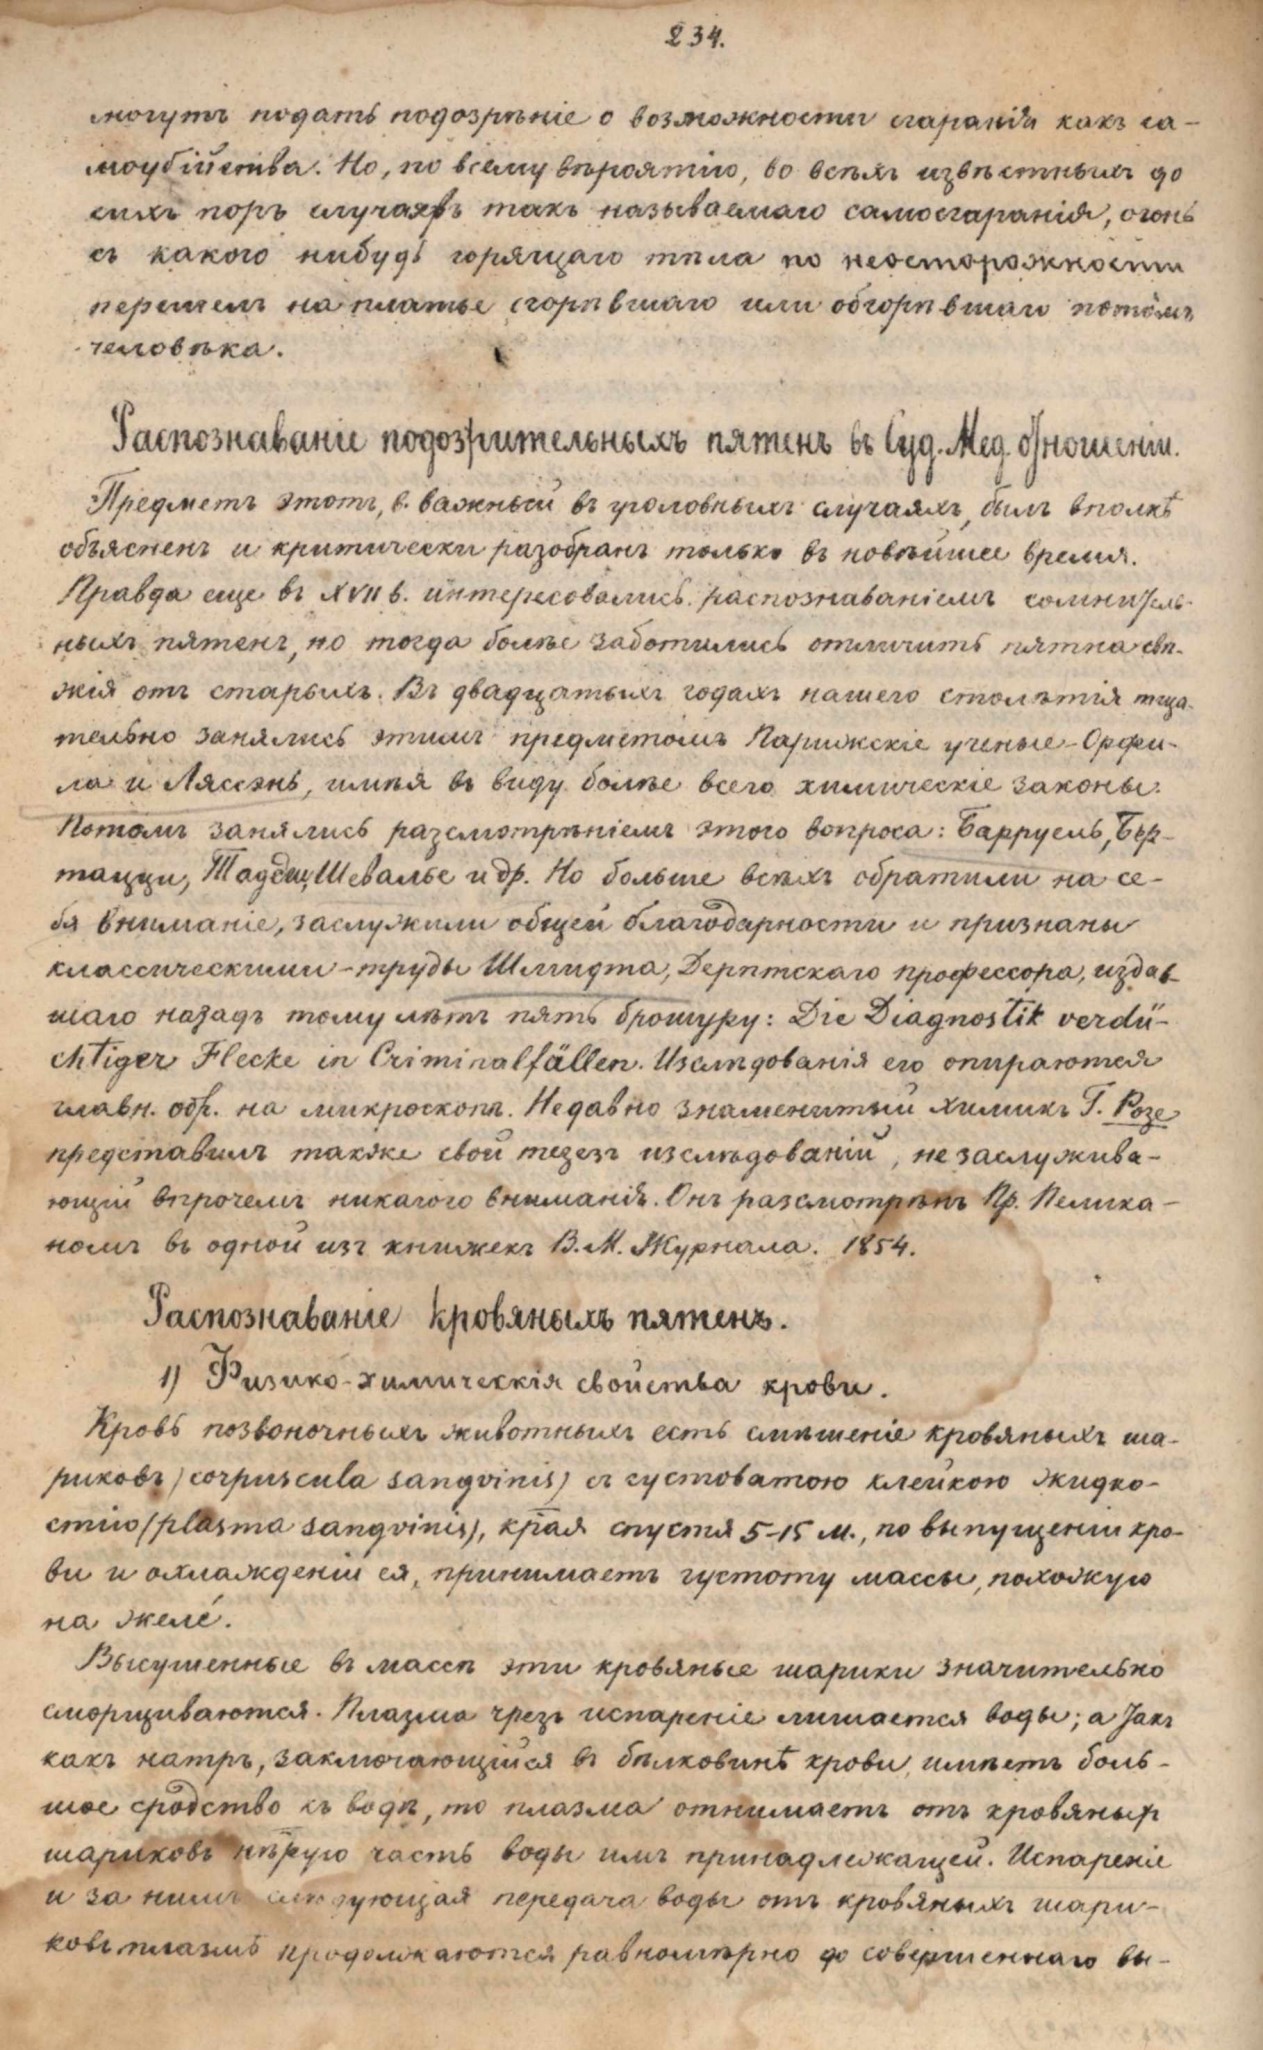 234.
могутъ подать подозрѣніе о возможности сгаранія какъ са-
моубійства. Но, по всему вѣроятію, во всѣхъ извѣстныхъ до
сихъ поръ случаяхъ такъ называемаго самосгаранія, огонь
съ какого нибудь горящаго тѣла по неосторожности
перешелъ на платье сгорѣвшаго или обгорѣвшаго потомъ
человѣка.
Распознаваніе подозрительныхъ пятенъ въ Суд. Мед. отношеніи.
Предметъ этотъ, в. важный въ уголовныхъ случаяхъ, былъ вполнѣ
объясненъ и критически разобранъ только въ новѣйшее время.
Правда еще въ XVII в. интересовались распознаваніемъ сомнитель-
ныхъ пятенъ, но тогда болѣе заботились отличить пятна свѣ-
жія отъ старыхъ. Въ двадцатыхъ годахъ нашего столѣтія тща-
тельно занялись этимъ предметомъ Парижскіе ученые - Орфи-
ла и Лассэнь, имѣя въ виду болѣе всего химическіе законы.
Потомъ занялись разсмотрѣніемъ этого вопроса: Барруель, Бер-
тацци, Шевалье и др. Но больше всѣхъ обратили на се-
бя вниманіе, заслужили общей благодарности и признаны
классическими - труды Шмидта, Дерптскаго профессора, издав-
шаго назадъ тому лѣтъ пять брошуру: Die Diagnostik verdä-
chtiger Flecke in Criminalfällen. Изслѣдованія его опираются
главн. обр. на микроскопъ. Недавно знаменитый химикъ Г. Розе
представилъ также свой тезезъ изслѣдованій, не заслужива-
ющій впрочемъ никакого вниманія. Онъ разсмотрѣнъ Пр. Пелика-
номъ въ одной изъ книжекъ В. М. Журнала. 1854.
Распознаваніе кровяныхъ пятенъ.
1) Физико-химическкія свойства крови.
Кровь позвоночныхъ животныхъ есть смѣшеніе кровяныхъ ша-
риковъ (corpuscula sangvinis) съ густоватою клейкою жидко-
стію (plasma sangvinis), края спустя 5-15 м., по выпущеніи кро-
ви и охлажденіи ея, принимаетъ густоту массы, похожую
на желе́.
Высушенные въ массѣ эти кровяные шарики значительно
сморщиваются. Плазма чрезъ испареніе лишается воды; а такъ
какъ натръ, заключающійся въ бѣлковинѣ крови, имѣетъ боль-
шое сродство къ водѣ, то плазма отнимаетъ отъ кровяныхъ
шариковъ нѣкрую часть воды имъ принадлежащей. Испареніе
и за нимъ слѣдующая передача воды отъ кровяныхъ шари-
ковъ плазмѣ продолжаются равномѣрно до совершеннаго вы-